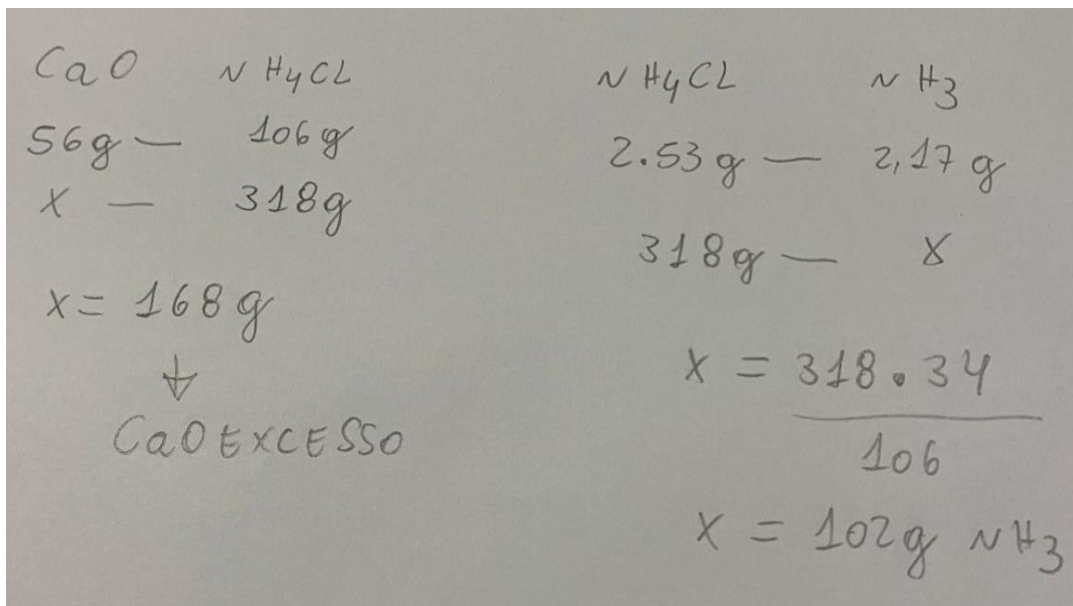 CaO NH4CL
56g — 106g
X — 318g
X = 168g
↓
CaO EXCESSO
NH4CL NH3
2.53g — 2,17g
318g — X
X = 318.34
106
X = 102g NH3